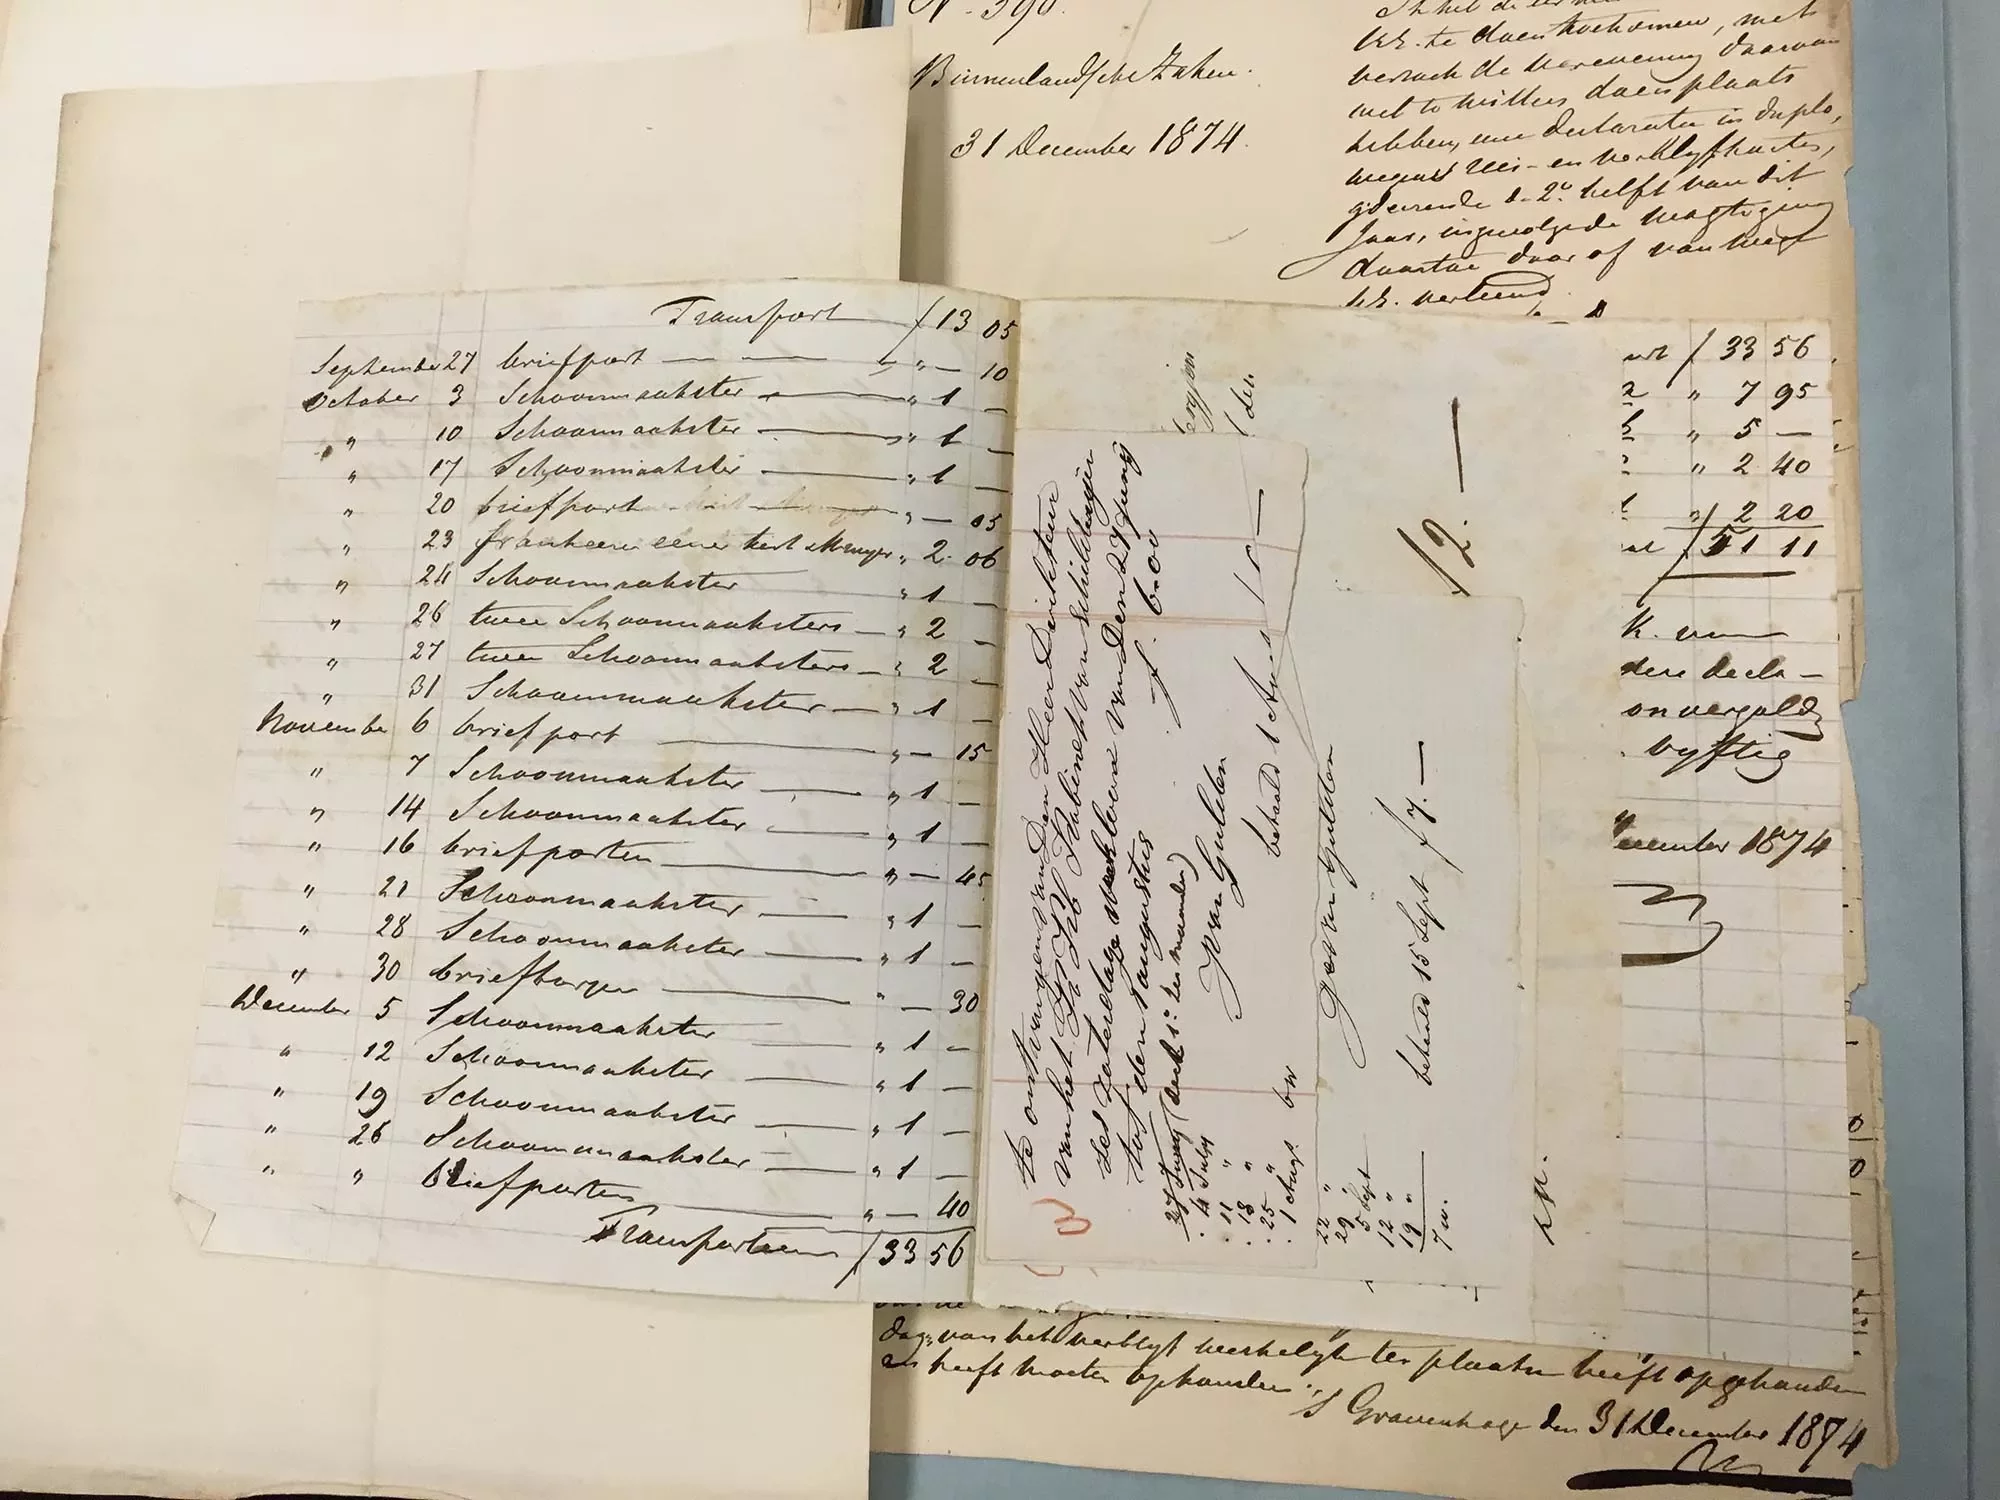 N. 390.
Binnenlandsche Zaken.
31 December 1874.
te doen toekomen, met
verzoek de verevening daarvan
wel te willen doen plaats
hebben, eene declaratie in duplo,
wegens reis- en verblyfkosten,
gedurende de 2e helft van dit
Jaar, ingevolge de magtiging
daartoe door of van wege
verleend
Transport f 13 05
September 27 briefport — — " — 10
October 3 Schoonmaakster — " 1 —
" 10 Schoonmaakster — " 1 —
" 17 Schoonmaakster — " 1 —
" 20 briefport " — 05
" 23 frankeeren eener kist " 2. 06
" 24 Schoonmaakster " 1 —
" 26 twee Schoonmaaksters — " 2 —
" 27 twee Schoonmaaksters — " 2 —
" 31 Schoonmaakster — " 1 —
November 6 briefport — " — 15
" 7 Schoonmaakster — " 1 —
" 14 Schoonmaakster — " 1 —
" 16 briefporten — " — 45
" 21 Schoonmaakster — " 1 —
" 28 Schoonmaakster — " 1 —
" 30 — " — 30
December 5 Schoonmaakster — " 1 —
" 12 Schoonmaakster — " 1 —
" 19 Schoonmaakster — " 1 —
" 26 Schoonmaakster — " 1 —
" " briefporten — " — 40
Transporteren f 33 56
te ontvangen van den Heer Direkteur
van het Kabinet van Schilderijen
zes zaterdags van den 27 Juny
tot den 1 augustus f. 6.00
J van Gulden
27 Juny
. 4 July
. 11 "
. 18 "
. 25 "
. 1 Aug.
betaald 1 Aug
22 "
29 "
5 Sept
12 "
19 "
7 w.
G van Gulden
betaald 15 Sept f 7. —
f 2. —
f 33 56
" 7 95
" 5 —
" 2 40
" 2 20
f 51 11
K. van
dere decla-
onvergold
vyftig
ecember 1874
dag van het verblyf werkelyk ter plaatse heeft opgehouden
en heeft moeten ophouden.
's Gravenhage den 31 December 1874